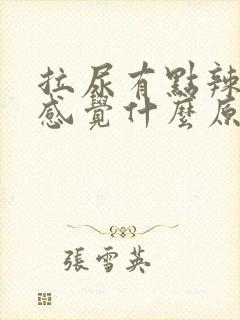 拉尿有點辣
感覺什麼原
張雪英